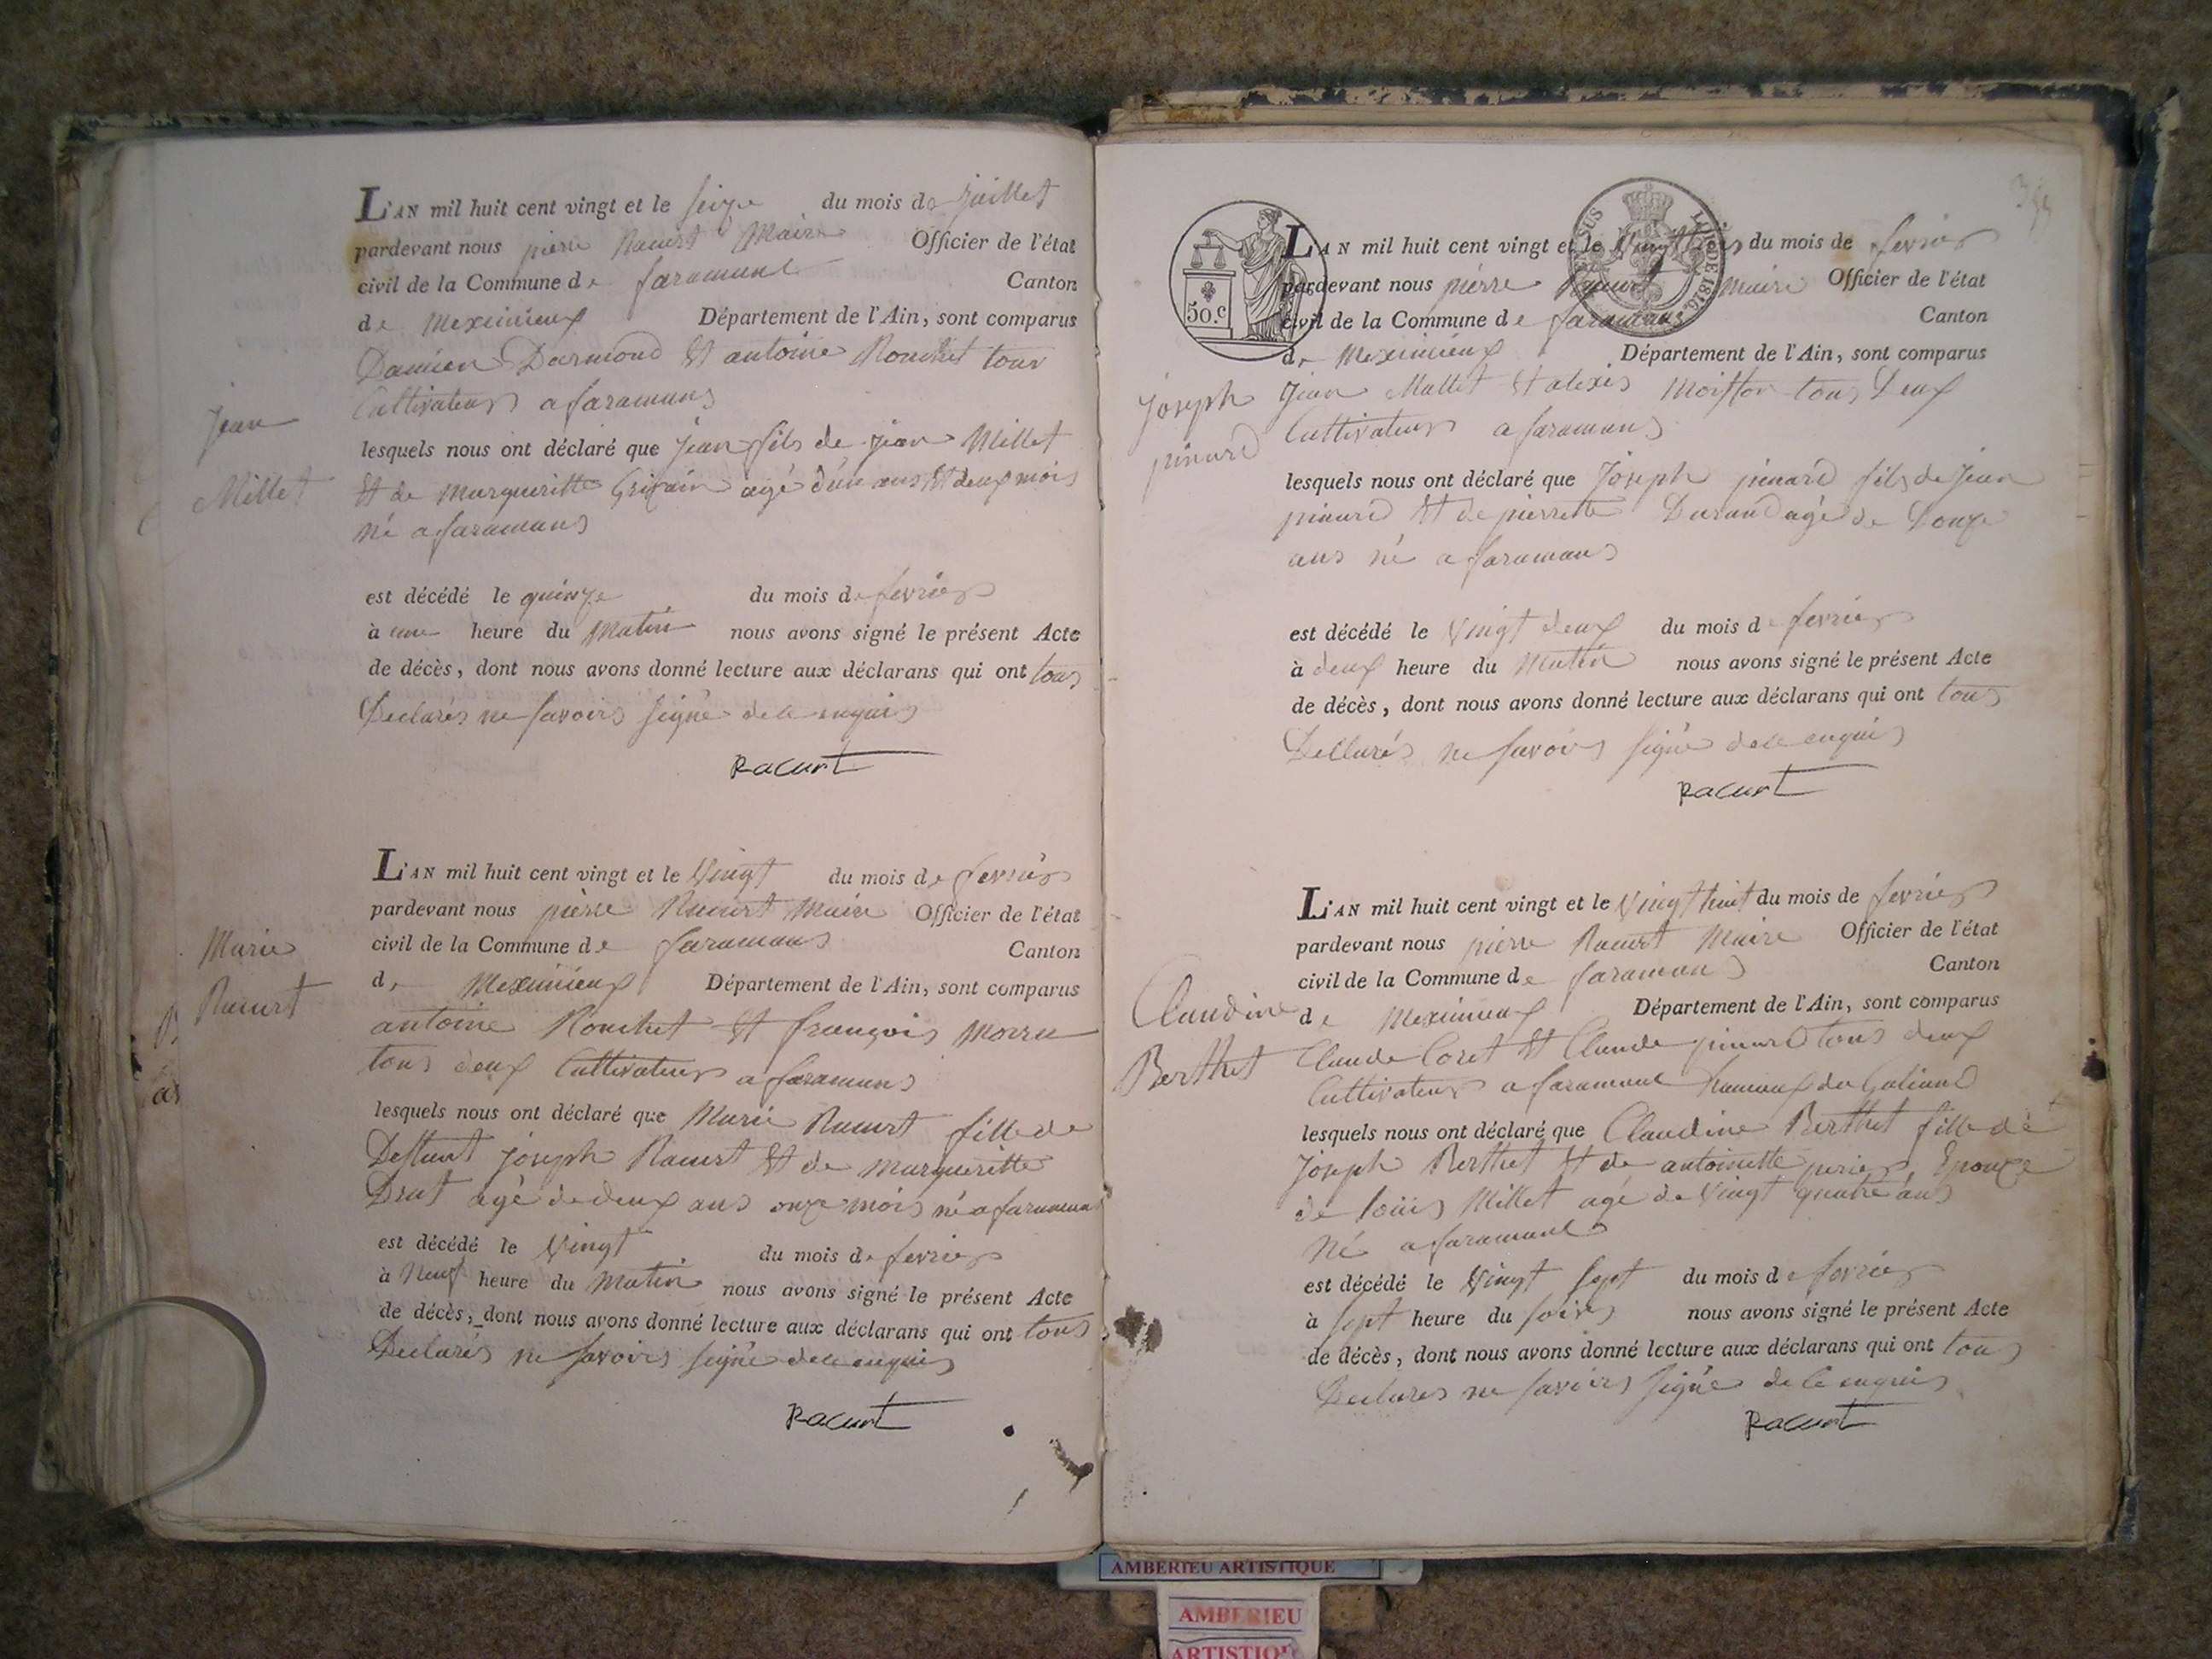 L'AN mil huit cent vingt et le seize du mois de juillet
pardevant nous pierre Racurt Maire Officier de l'état
civil de la Commune de faramans Canton
de Meximieux Département de l'Ain, sont comparus
Damien Darmond et antoine Rouchet tous
Cultivateurs a faramans
Jean
Millet
lesquels nous ont déclaré que jean fils de jean Millet
et de margueritte agé d'un ans et deux mois
né a faramans
est décédé le quinze du mois de fevrier
à une heure du Matin nous avons signé le présent Acte
de décès, dont nous avons donné lecture aux déclarans qui ont tous
Declarés ne savoirs signé de ce enquis
Racurt
L'AN mil huit cent vingt et le vingt du mois de fevrier
pardevant nous pierre Racurt Maire Officier de l'état
civil de la Commune de faramans Canton
de Meximieux Département de l'Ain, sont comparus
Marie
Racurt
antoine Rouchet et françois Morru
tous deux Cultivateurs a faramans
lesquels nous ont déclaré que Marie Racurt fille de
Deffunt joseph Racurt et de margueritte
Drut agé de deux ans onze mois né a faramans
est décédé le vingt du mois de fevrier
à Neuf heure du Matin nous avons signé le présent Acte
de décès, dont nous avons donné lecture aux déclarans qui ont tous
Declarés ne savoirs signé de ce enquis
Racurt
50.c
SUS
LOI DE 1816.
L'AN mil huit cent vingt et le vingt trois du mois de fevrier
pardevant nous pierre Racurt maire Officier de l'état
civil de la Commune de faramans Canton
de Meximieux Département de l'Ain, sont comparus
joseph
pinard
Jean Mallet et alexis Moisson tous Deux
Cultivateurs a faramans
lesquels nous ont déclaré que Joseph pinard fils de jean
pinard et de pierrette Durand agé de Douze
ans né a faramans
est décédé le vingt deux du mois de fevrier
à deux heure du Matin nous avons signé le présent Acte
de décès, dont nous avons donné lecture aux déclarans qui ont tous
Dellarés ne savoirs signé de ce enquis
Racurt
L'AN mil huit cent vingt et le vingt huit du mois de fevrier
pardevant nous pierre Racurt Maire Officier de l'état
civil de la Commune de faramans Canton
de Meximieux Département de l'Ain, sont comparus
Claudine
Berthet
Claude Coret et Claude pinard tous deux
Cultivateurs a faramans hameaux du Galiand
lesquels nous ont déclaré que Claudine Berthet fille de
joseph Berthet et de antoinette perier, Epouze
de loüis Millet agé de vingt quatre ans
Né a faramans
est décédé le vingt sept du mois de fevrier
à sept heure du soirs nous avons signé le présent Acte
de décès, dont nous avons donné lecture aux déclarans qui ont tous
Declares ne savoirs signé de ce enquis
Racurt
AMBERIEU ARTISTIQUE
AMBERIEU